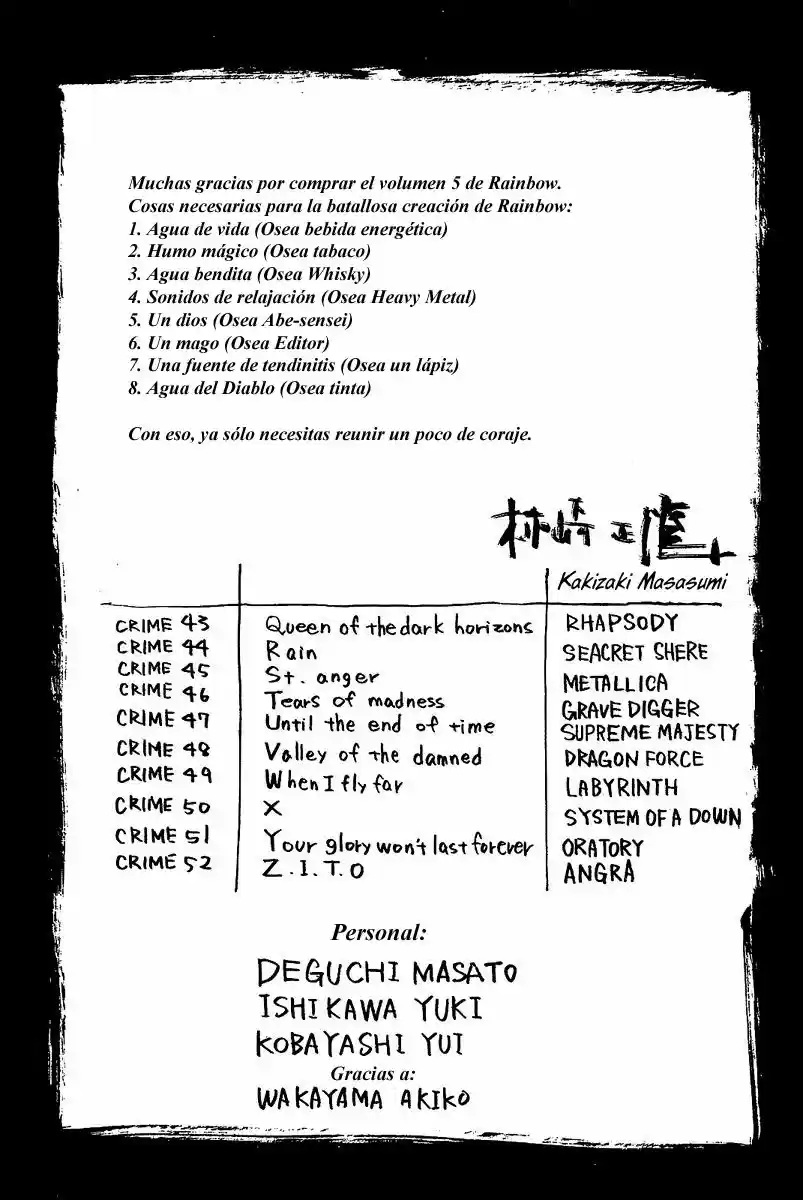 Muchas gracias por comprar el volumen 5 de Rainbow.
Cosas necesarias para la batallosa creación de Rainbow:
1. Agua de vida (Osea bebida energética)
2. Humo mágico (Osea tabaco)
3. Agua bendita (Osea Whisky)
4. Sonidos de relajación (Osea Heavy Metal)
5. Un dios (Osea Abe-sensei)
6. Un mago (Osea Editor)
7. Una fuente de tendinitis (Osea un lápiz)
8. Agua del Diablo (Osea tinta)
Con eso, ya sólo necesitas reunir un poco de coraje.
柿崎正澄
Kakizaki Masasumi
CRIME 43 Queen of the dark horizons RHAPSODY
CRIME 44 Rain SEACRET SHERE
CRIME 45 St. anger METALLICA
CRIME 46 Tears of madness GRAVE DIGGER
CRIME 47 Until the end of time SUPREME MAJESTY
CRIME 48 Valley of the damned DRAGON FORCE
CRIME 49 When I fly far LABYRINTH
CRIME 50 X SYSTEM OF A DOWN
CRIME 51 Your glory won't last forever ORATORY
CRIME 52 Z.I.T.O ANGRA
Personal:
DEGUCHI MASATO
ISHIKAWA YUKI
KOBAYASHI YUI
Gracias a:
WAKAYAMA AKIKO